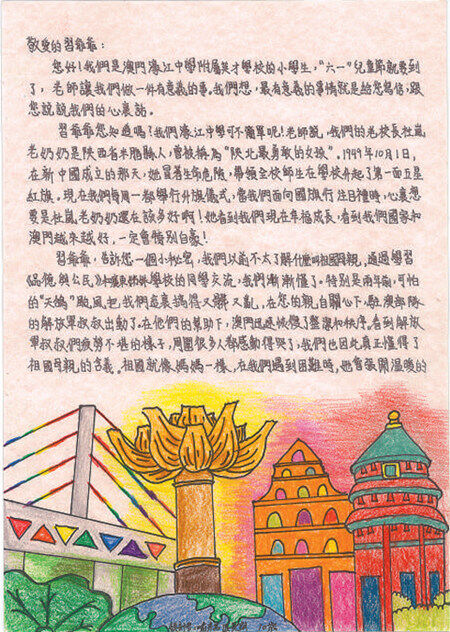 敬愛的習爺爺：
您好！我們是澳門濠江中學附屬英才學校的小學生，“六一”兒童節就要到
了，老師讓我們做一件有意義的事。我們想，最有意義的事情就是給您寫信，跟
您說說我們的心裏話。
習爺爺您知道嗎？我們濠江中學可不簡單呢！老師說，我們的老校長杜嵐
老奶奶是陝西省米脂縣人，曾被稱為“陝北最勇敢的女孩”。1949年10月1日，
在新中國成立的那天，她冒着生命危險，帶領全校師生在學校升起了第一面五星
紅旗。現在我們每周一都舉行升旗儀式，當我們面向國旗行注目禮時，心裏想
要是杜嵐老奶奶還在該多好啊！他看到我們現在幸福成長，看到我們國家和
澳門越來越好，一定會特別自豪！
習爺爺，告訴您一個小秘密，我們以前不太了解什麼叫祖國母親，通過學習
《品德與公民》和學校的同學交流，我們漸漸懂了。特別是兩年前，可怕
的“天鴿”颱風把我們家裏搞得又髒又亂，在您的親自關心下，駐澳部隊
的解放軍叔叔出動了。在他們的幫助下，澳門迅速恢復了整潔和秩序。看到解放
軍叔叔們疲勞不堪的樣子，周圍很多人都感動得哭了，我們也因此真正懂得了
祖國母親的含義。祖國就像媽媽一樣，在我們遇到困難時，她會張開溫暖的